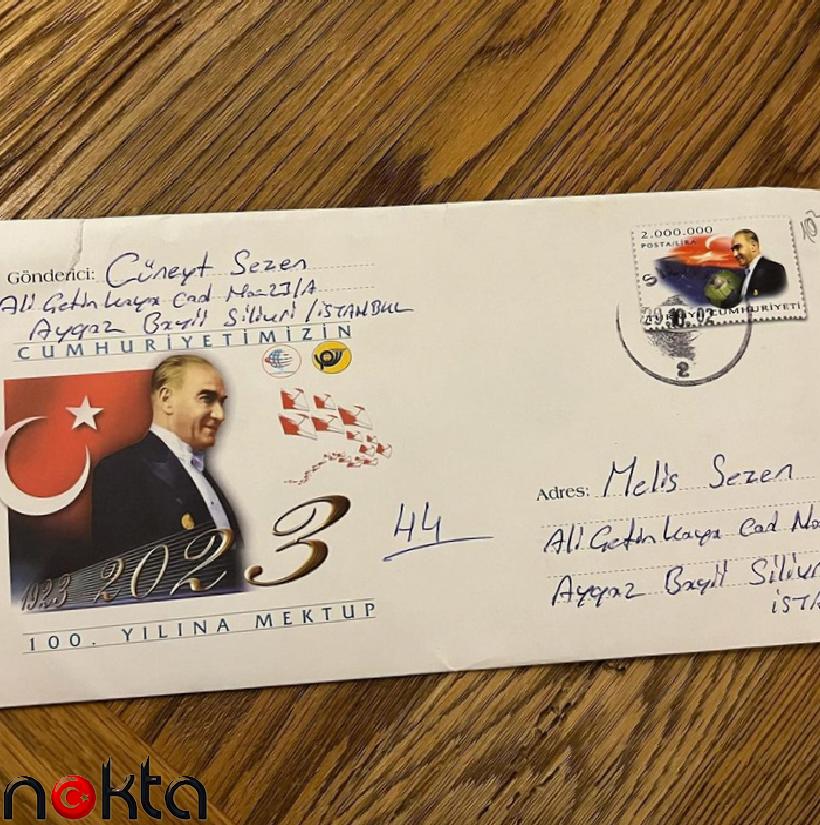 Gönderici: Cüneyt Sezen
Ali Çetinkaya Cad No=23/A
Aygaz Bayii Silivri / İSTANBUL
CUMHURİYETİMİZİN
1923 2023
100. YILINA MEKTUP
44
2.000.000
POSTA/LİRA
CUMHURİYETİ
02
2
Adres: Melis Sezen
Ali Çetinkaya Cad No
Aygaz Bayii Silivr
İST
nokta